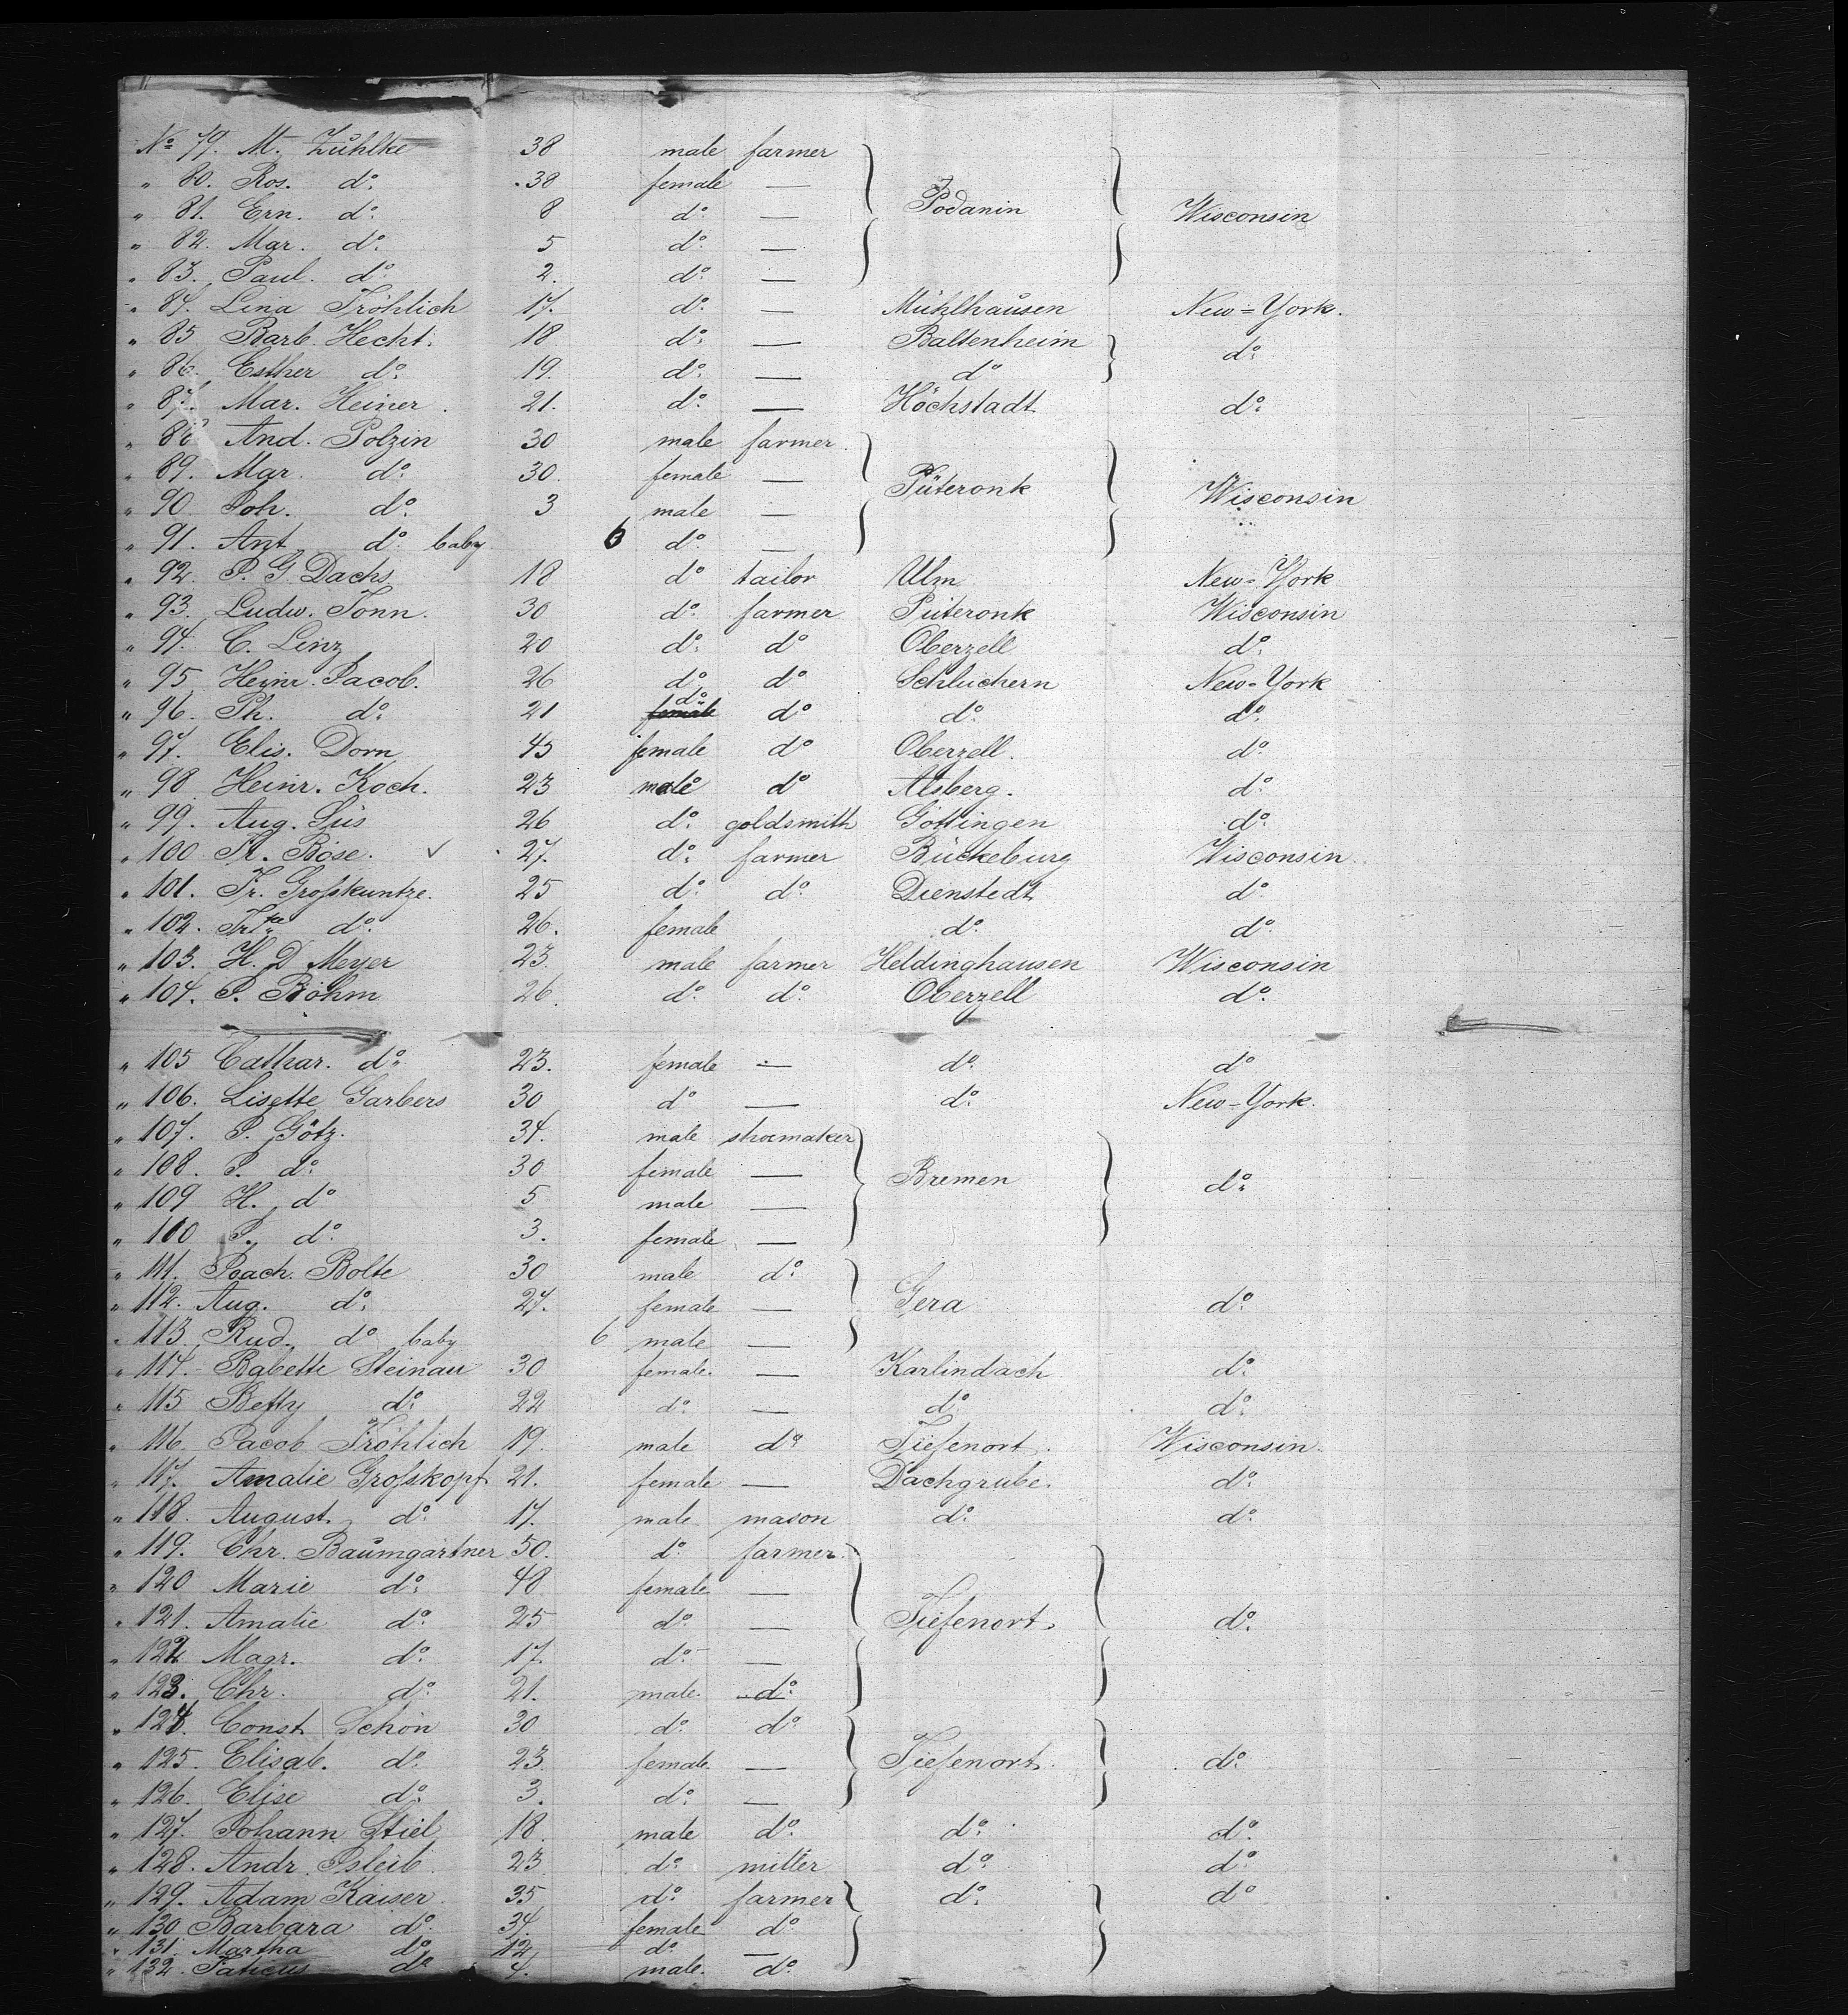 No 79. M. Zühlke 38 male farmer
" 80. Ros. do. 38 female —
" 81. Ern. do. 8 do. — Podanin Wisconsin
" 82. Mar. do. 5 do. —
" 83. Paul. do. 2. do. —
" 84. Lina Fröhlich 17. do. — Mühlhausen New=York.
" 85 Barb. Hecht. 18 do. — Baltenheim do.
" 86. Esther do. 19. do. — do
" 87. Mar. Heiner. 21. do. — Höchstadt do.
" 88 And. Polzin 30 male farmer.
" 89. Mar. do. 30. female —
" 90 Joh. do. 3 male — Püteronk Wisconsin
" 91. Ant. do. baby 6 do. —
" 92. P. G. Dachs 18 do. tailor Ulm New-York
" 93. Ludw. Tonn. 30 do. farmer Püteronk Wisconsin
" 94. C. Linz 20 do. do Oberzell do.
" 95 Heinr. Jacob. 26 do. do. Schluchern New-York
" 96. Ph. do. 21 do. do do. do.
" 97. Elis. Dorn 45 female do. Oberzell. do.
" 98 Heinr. Koch. 23 male do Alsberg. do.
" 99. Aug. Süs 26 do. goldsmith Göttingen do.
" 100 Fr. Böse. 27. do. farmer Bückeburg Wisconsin
" 101. Fr. Großkuntze. 25 do. do. Dienstedt do.
" 102. Frke do. 26. female do. do.
" 103. H. D Meyer 23 male farmer Heldinghausen Wisconsin
" 104. P. Böhm 26. do. do. Oberzell do.
" 105 Cathar. do. 23. female — do. do
" 106. Lisette Garbers 30 do — do. New-York.
" 107. P. Götz. 34. male shoemaker
" 108. P. do. 30 female — Bremen do.
" 109 H. do 5 male —
" 100 P. do. 3. female —
" 111. Joach. Bolte 30 male do.
" 112. Aug. do. 27. female — Gera do.
" 113 Rud. do baby 6 male —
" 114. Babette Steinau 30 female. — Karlindach do.
" 115 Betty do. 22 do. — do. do.
" 116. Jacob Fröhlich 19. male do. Tiefenort. Wisconsin.
" 117. Amalie Großkopf 21. female — Dachgrube. do.
" 118. August do. 17. male mason do. do.
" 119. Chr. Baumgärtner 50. do. farmer.
" 120 Marie do. 48 female —
" 121. Amalie do. 25 do. — Tiefenort. do.
" 122 Magr. do. 17. do. —
" 123. Chr. do. 21. male. do.
" 124. Const Schön 30 do. do.
" 125. Elisab. do. 23. female — Tiefenort. do.
" 126. Elise do. 3. do. —
" 127. Johann Stiel 18. male do. do. do.
" 128. Andr. Isleib. 23 do. miller do. do.
" 129. Adam Kaiser 35 do. farmer do. do
" 130 Barbara do. 34. female do.
" 131. Martha do. 12. do. —
" 132. do 4. male. do.